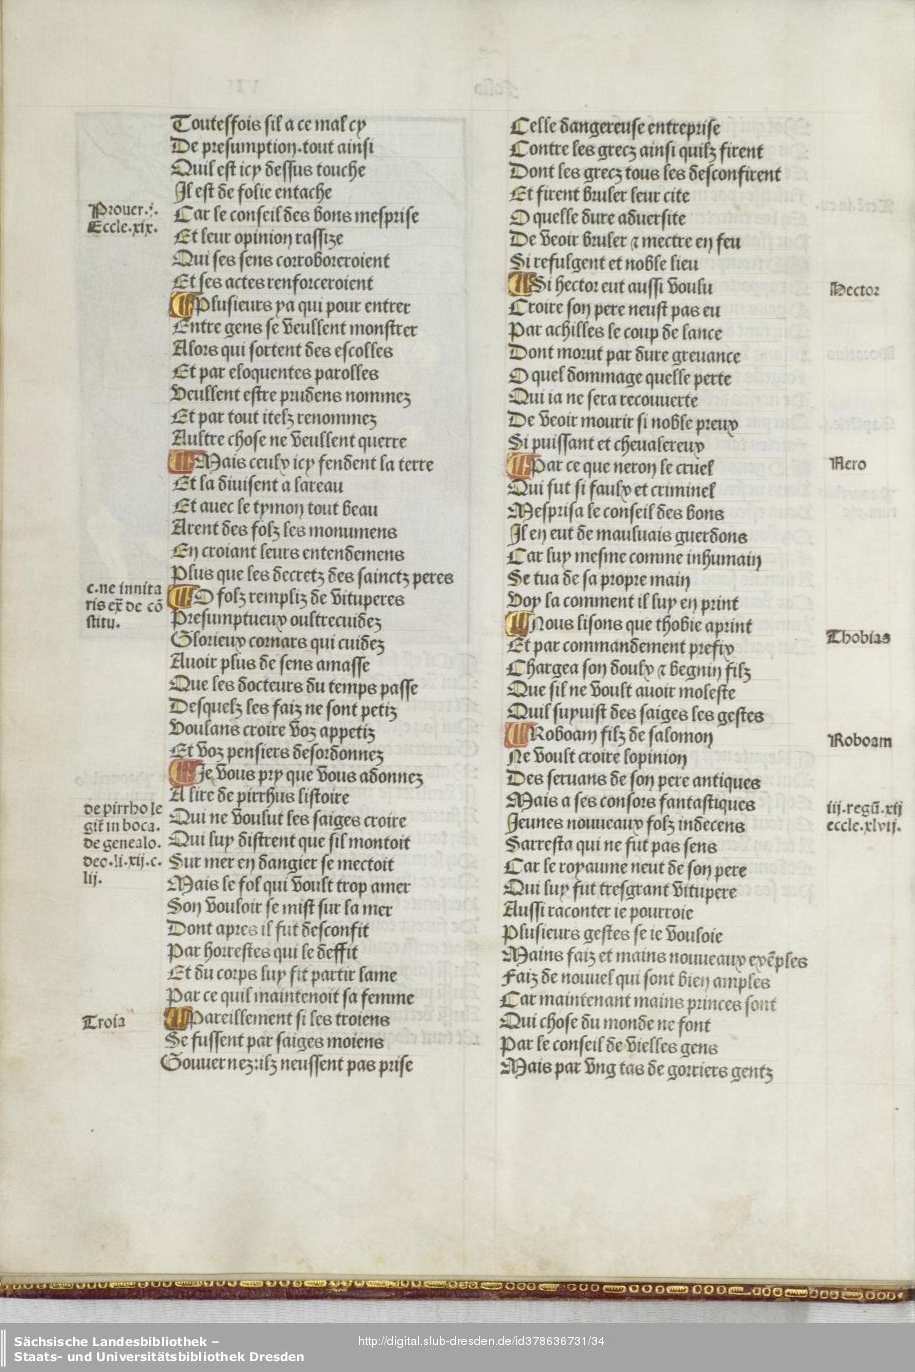 Toutesfois sil a ce mal cy
De presumption.tout ainsi
Quil est icy dessus touche
Il est de folie entache
Prouer.i.
Eccle.xix.
Car le conseil des bons mesprise
Et leur opinion rassize
Qui ses sens corroboreroient
Et ses actes renforceroient
¶Plusieurs ya qui pour entrer
Entre gens se veullent monstrer
Alors qui sortent des escolles
Et par eloquentes parolles
Veullent estre prudens nommez
Et par tout itelz renommez
Aultre chose ne veullent querre
¶Mais ceulx icy fendent la terre
Et la diuisent a lareau
Et auec le tymon tout beau
Arent des folz les monumens
En croiant leurs entendemens
Plus que les decretz des sainctz peres
c.ne innita
ris ex̃ de cõ
stitu.
¶O folz rempliz de vituperes
Presumptueux oultrecuidez
Glorieux cornars qui cuidez
Auoir plus de sens amasse
Que les docteurs du temps passe
Desquelz les faiz ne sont petiz
Voulans croire voz appetiz
Et voz pensiers desordonnez
¶Je vous pry que vous adonnez
A lire de pirrhus listoire
de pirrho le
git̃ in boca.
de genealo.
deo.li.xij.c.
lij.
Qui ne voulut les saiges croire
Qui luy distrent que sil montoit
Sur mer en dangier se mectoit
Mais le fol qui voult trop amer
Son vouloir se mist sur la mer
Dont apres il fut desconfit
Par horrestes qui le deffit
Et du corps luy fit partir lame
Par ce quil maintenoit sa femme
Troia
¶Pareillement si les troiens
Se fussent par saiges moiens
Gouuernez:ilz neussent pas prise
Celle dangereuse entreprise
Contre les grecz ainsi quilz firent
Dont les grecz tous les desconfirent
Et firent bruler leur cite
O quelle dure aduersite
De veoir bruler ⁊ mectre en feu
Si refulgent et noble lieu
¶Si hector eut aussi voulu
Hector
Croire son pere neust pas eu
Par achilles le coup de lance
Dont morut par dure greuance
O quel dommage quelle perte
Qui ia ne sera recouuerte
De veoir mourir si noble preux
Si puissant et cheualereux
¶Par ce que neron le cruel
Nero
Qui fut si faulx et criminel
Mesprisa le conseil des bons
Il en eut de mauluais guerdons
Car luy mesme comme inhumain
Se tua de sa propre main
Voy la comment il luy en print
¶Nous lisons que thobie aprint
Thobias
Et par commandement prefix
Chargea son doulx ⁊ begnin filz
Que sil ne voult auoir moleste
Quil suyuist des saiges les gestes
¶Roboam filz de salomon
Roboam
Ne voult croire lopinion
Des seruans de son pere antiques
Mais a ses consors fantastiques
iij.regũ.xij
eccle.xlvij.
Jeunes nouueaux folz indecens
Sarresta qui ne fut pas sens
Car le royaume neut de son pere
Qui luy fut tresgrant vitupere
Aussi raconter ie pourroie
Plusieurs gestes se ie vouloie
Mains faiz et mains nouueaux exẽples
Faiz de nouuel qui sont bien amples
Car maintenant mains princes sont
Qui chose du monde ne font
Par le conseil de vielles gens
Mais par vng tas de gorriers gentz
Sächsische Landesbibliothek –
Staats- und Universitätsbibliothek Dresden
http://digital.slub-dresden.de/id378636731/34